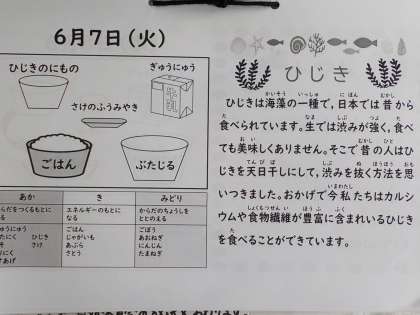 6月7日(火)
ひじきのにもの
ぎゅうにゅう
牛乳
さけのふうみやき
ごはん
ぶたじる
あか
き
みどり
らだをつくるもとに
る
エネルギーのもとに
なる
からだのちょうしを
ととのえる
ゅうにゅう
たにく ひじき
そ さけ
りあげ
ごはん
じゃがいも
あぶら
さとう
ごぼう
あおねぎ
にんじん
たまねぎ
ひじき
ひじきは海藻の一種で,日本では昔から
食べられています。生では渋みが強く,食べ
ても美味しくありません。そこで昔の人はひ
じきを天日干しにして,渋みを抜く方法を思
いつきました。おかげで今私たちはカルシ
ウムや食物繊維が豊富に含まれいるひじき
を食べることができています。